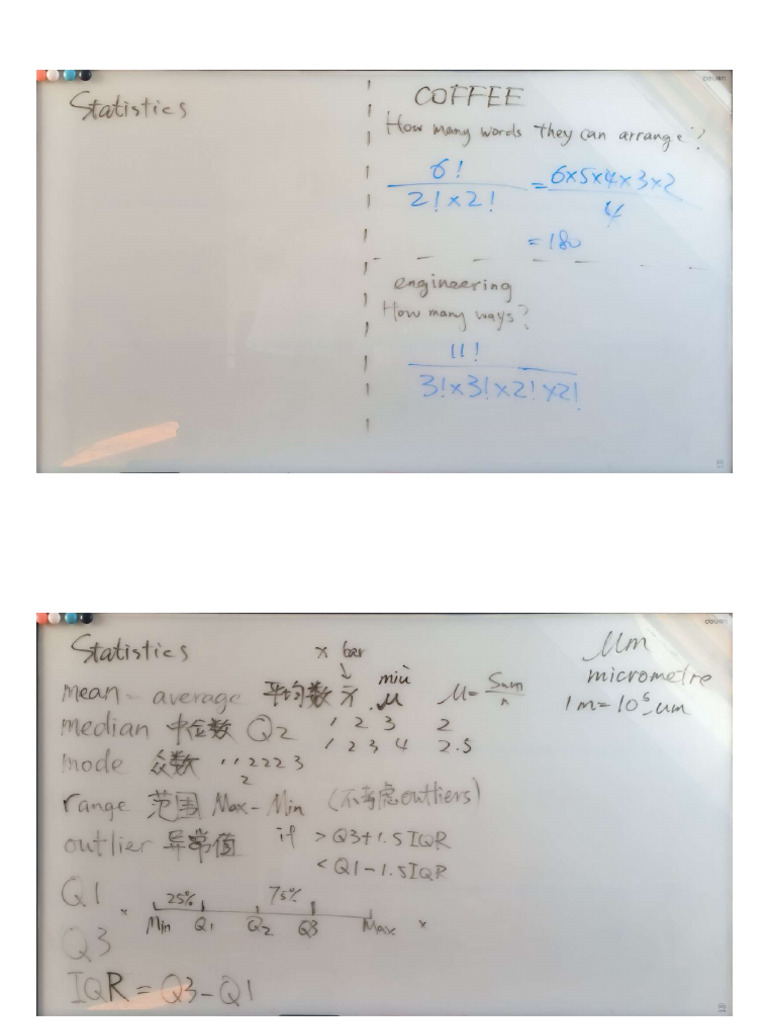 Statistics
COFFEE
How many words they can arrange?
6!
2! × 2!
= 6×5×4×3×2
4
= 180
engineering
How many ways?
11!
3!×3!×2!×2!
Statistics
x bar
mean = average 平均数 x̄ . miù μ μ = Sum
n
median 中位数 Q2 1 2 3 2
1 2 3 4 2.5
mode 众数 1 1 2 2 2 3
2
range 范围 Max - Min (不考虑outliers)
outlier 异常值 if > Q3+1.5IQR
< Q1-1.5IQR
Q1
x 25% 75%
Min Q1 Q2 Q3 Max x
Q3
IQR = Q3-Q1
μm
micrometre